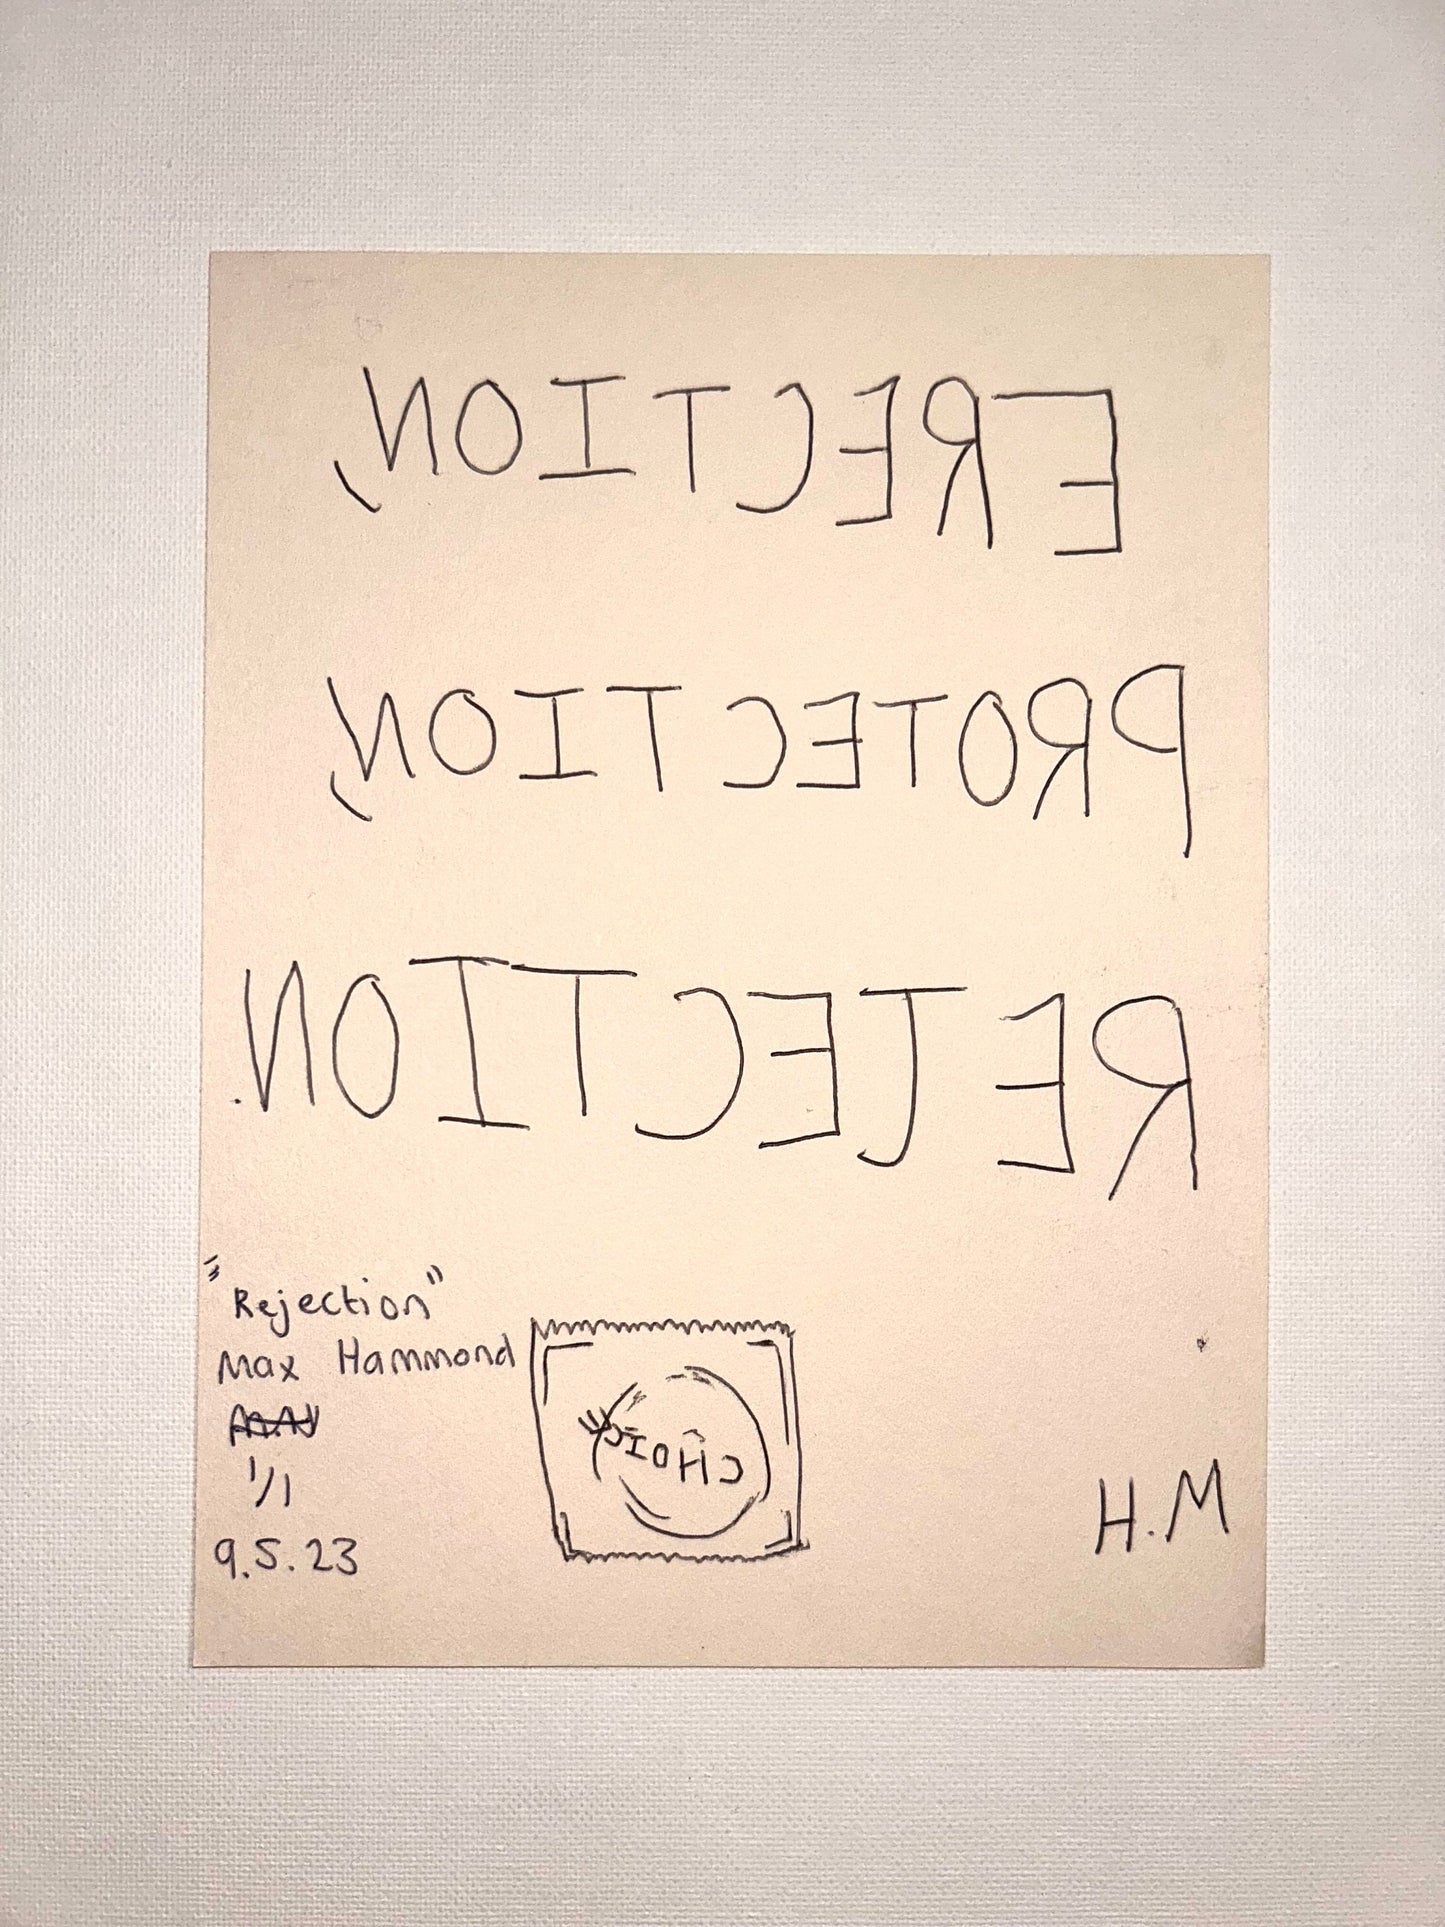 ERECTION,
PROTECTION,
REJECTION.
"Rejection"
Max Hammond
1/1
9.5.23
CHOICE
H.M